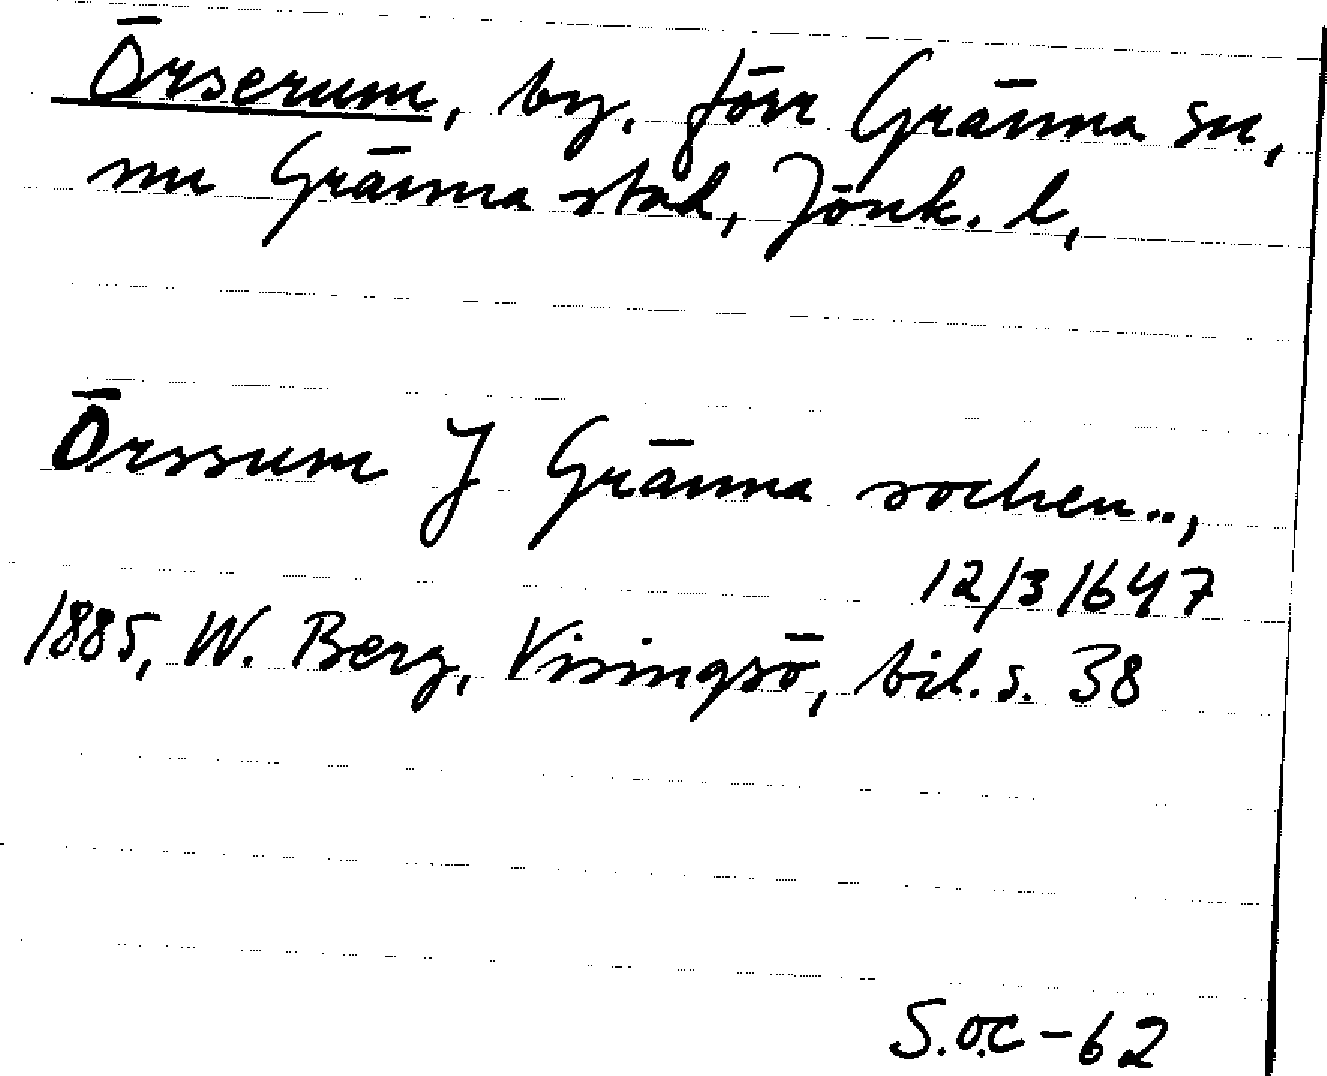 Örserum, by. förr Gränna sn,
nu Gränna stad, Jönk. l,
Örssum J Gränna sochen..,
12/3 1647
1885, W. Berg, Visingsö, bil. s. 38
S.o.C - 62